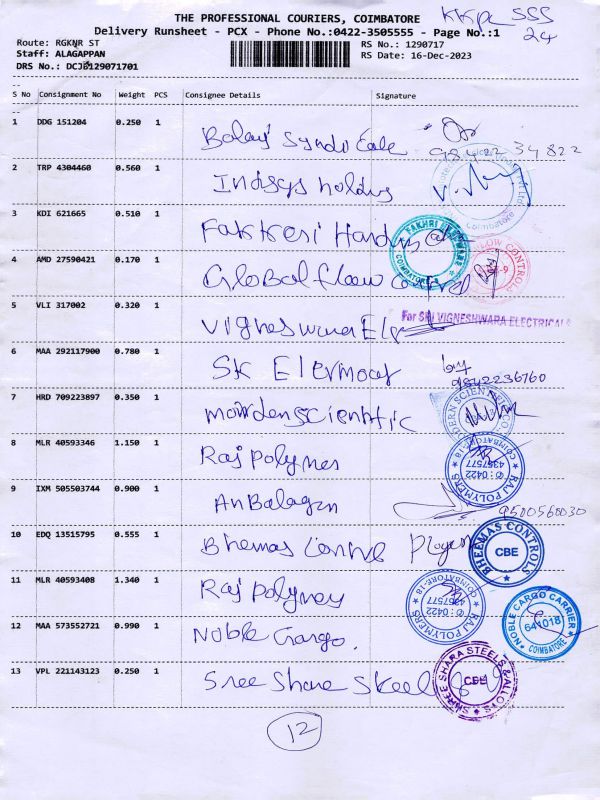 THE PROFESSIONAL COURIERS, COIMBATORE
KKPL SSS
24
Delivery Runsheet - PCX - Phone No.:0422-3505555 - Page No.:1
Route: RGKNR ST
RS No.: 1290717
Staff: ALAGAPPAN
RS Date: 16-Dec-2023
DRS No.: DCJB129071701
S No Consignment No Weight PCS Consignee Details Signature
1 DDG 151204 0.250 1
2 TRP 4304460 0.560 1 Indsys holdings
3 KDI 621665 0.510 1
FAKHRI HARDWARE COIMBATORE
4 AMD 27590421 0.170 1 Global flow control
FLOW CONTROLS
5 VLI 317002 0.320 1 Vigneswara Ele
For SRI VIGNESHWARA ELECTRICALS
6 MAA 292117900 0.780 1 SK
9842236760
7 HRD 709223897 0.350 1 mowdenscientific
MODERN SCIENTIFIC CO.
8 MLR 40593346 1.150 1 Raj Polymes
RAJ POLYMERS 0422 4367577 COIMBATORE-18
9 IXM 505503744 0.900 1 AnBalagan
9500560030
10 EDQ 13515795 0.555 1 Bhemas
BHEEMAS CONTROLS CBE
11 MLR 40593408 1.340 1 Raj Polymes
RAJ POLYMERS 0422 4367577 COIMBATORE-18
12 MAA 573552721 0.990 1 Noble Cargo.
NOBLE CARGO CARRIER 641018 COIMBATORE
13 VPL 221143123 0.250 1 Sree Share Steel
SHREE SHARA STEELS & ALLOYS CBE
12